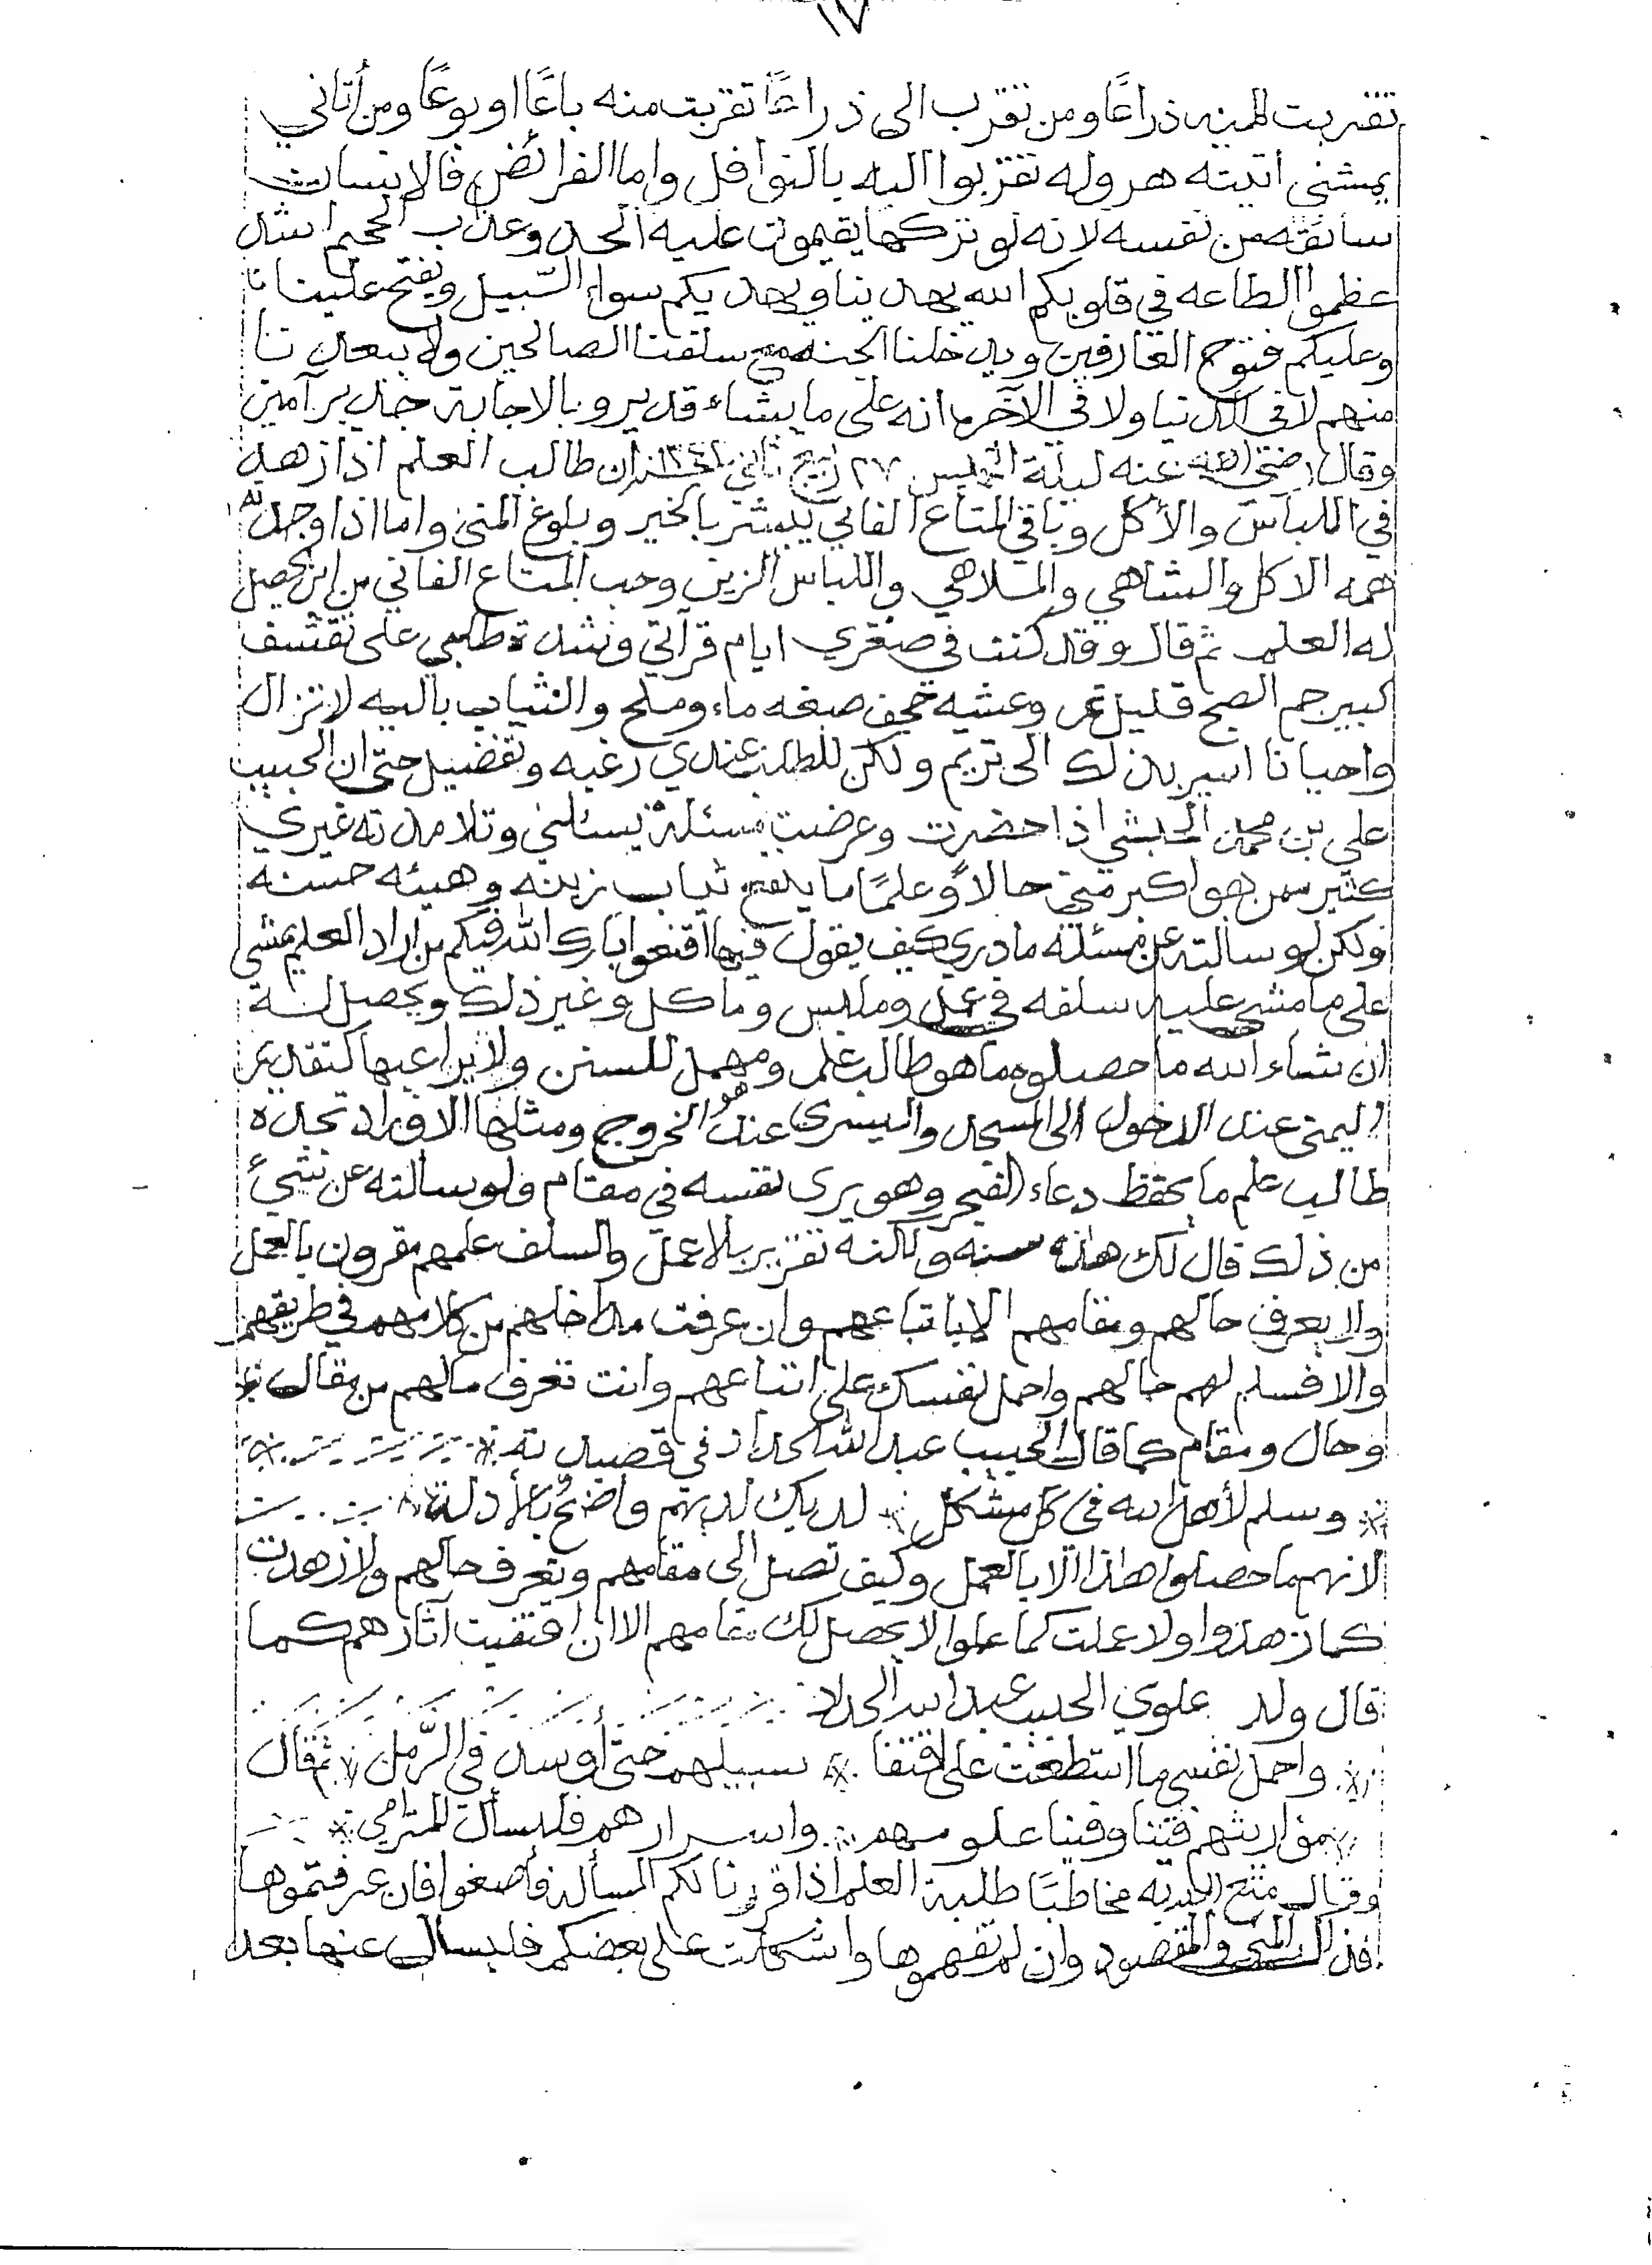 ١٧
تقربت منه ذراعًا ومن تقرب الى ذراعًا تقربت منه باعًا او بوعًا ومن أتاني
يمشي اتيته هروله تقربوا اليه بالنوافل واما الفرائض فالانسان
سائقه من نفسه لانه لو تركها يقيمون عليه الحد وعذاب الجحيم اشد
عظموا الطاعه في قلوبكم الله يهدينا ويهديكم سواء السّبيل ويفتح علينا
وعليكم فتوح العارفين ويدخلنا الجنه مع سلفنا الصالحين ولا يبعدنا
منهم لا في الدنيا ولا في الآخره انه على ما يشاء قدير وبالاجابة جدير آمين
وقال رضي الله عنه ليلة الخميس ٢٧ ربيع ثاني ان طالب العلم اذا زهد
في اللباس والأكل وباقي المتاع الفاني يبشر بالخير وبلوغ المنى واما اذا وجدته
همه الاكل والشاهي والملاهي واللباس الزين وحب المتاع الفاني من اين يحصل
له العلم ثم قال وقد كنت في صغري ايام قرآتي وشدة طلبي على تقشف
كبير جم الصبح قليل تمر وعشيه خجف صبغه ماء وملح والثياب باليه لا تزال
واحيانا اسير بذلك الى تريم ولكن للطلب عندي رغبه وتفضيل حتى ان الحبيب
علي بن محمد الحبشي اذا حضرت وعرضت مسئلة يسئلني وتلامدته غيري
كثير ممن هو اكبر مني حالاً وعلمًا ما يلقى ثياب زينه وهيئه حسنه
ولكن لو سالته عن مسئله مادري كيف يقول فيها اقنعوا بارك الله فيكم من اراد العلم يمشي
على ما مشى عليه سلفه في عمل وملبس وماكل وغير ذلك ويحصل له
ان شاء الله ما حصلوه ما هو طالب علم ومهمل للسنن ولا يراعيها كتقديم
اليمنى عند الدخول الى المسجد واليسرى عند الخروج ومثلها الاوراد تجده
طالب علم ما يحفظ دعاء الفجر وهو يرى نفسه في مقام ولو سالته عن شيءٍ
من ذلك قال لك هذه سنه ولكنه تقرير بلا عمل والسلف علمهم مقرون بالعمل
ولا يعرف حالهم ومقامهم الا باتباعهم وان عرفت مداخلهم من كلامهم في طريقهم
والا فسلم لهم حالهم واحمل نفسك على اتباعهم وانت تعرف مالهم من مقال
وحال ومقام كما قال الحبيب عبد الله الحداد في قصيدته
وسلم لأهل الله في كل مشكل لديك لديهم واضحٌ بالأدلة
لانهم ما حصلوا هذا الا بالعمل وكيف تصل الى مقامهم وتعرف حالهم ولا زهدت
كما زهدوا ولا عملت كما عملوا لا يحصل لك مقامهم الا ان اقتفيت آثارهم كما
قال ولد علوي الحبيب عبد الله الحداد
واحمل نفسي ما استطعت على اقتفا سبيلهم حتى أوسد في الرَّمل ثم قال
بمواريثهم فينا وفينا علومهم واسرارهم فليسأل المترامي
وقال متع الله به مخاطبًا طلبة العلم اذا قررنا لكم المسألة فأصغوا فان عرفتموها
فذاك المنى والمقصود وان لم تفهموها واشكلت على بعضكم فليسال عنها بعد